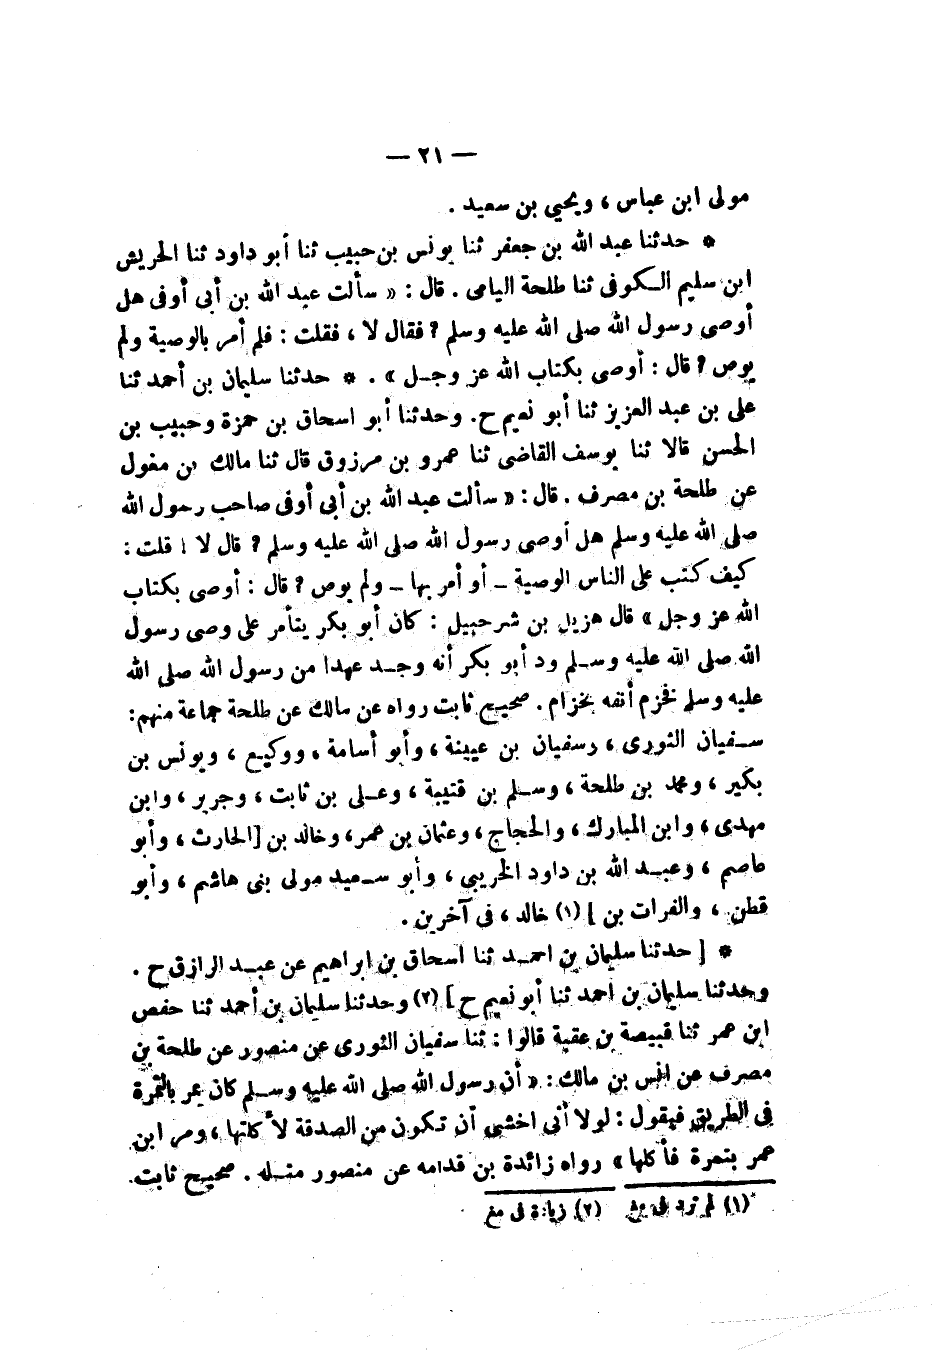 — ٢١ —
مولى ابن عباس ، ويحيى بن سعيد .
* حدثنا عبد الله بن جعفر ثنا يونس بن حبيب ثنا أبو داود ثنا الحريش
ابن سليم الكوفى ثنا طلحة اليامى . قال : « سألت عبد الله بن أبى أوفى هل
أوصى رسول الله صلى الله عليه وسلم ? فقال لا ، فقلت : فلم أمر بالوصية ولم
يوص ? قال : أوصى بكتاب الله عز وجل » . * حدثنا سليمان بن أحمد ثنا
على بن عبد العزيز ثنا أبو نعيم ح. وحدثنا أبو اسحاق بن حمزة وحبيب بن
الحسن قالا ثنا يوسف القاضى ثنا عمرو بن مرزوق قال ثنا مالك بن مغول
عن طلحة بن مصرف . قال : « سألت عبد الله بن أبى أوفى صاحب رسول الله
صلى الله عليه وسلم هل أوصى رسول الله صلى الله عليه وسلم ? قال لا ! قلت :
كيف كتب على الناس الوصية – أو أمر بها – ولم يوص ? قال : أوصى بكتاب
الله عز وجل » قال هزيل بن شرحبيل : كان أبو بكر يتأمر على وصى رسول
الله صلى الله عليه وسلم ود أبو بكر أنه وجد عهدا من رسول الله صلى الله
عليه وسلم فخزم أنفه بخزام . صحيح ثابت رواه عن مالك عن طلحة جماعة منهم:
سفيان الثورى ، وسفيان بن عيينة ، وأبو أسامة ، ووكيع ، ويونس بن
بكير ، ومحمد بن طلحة ، وسلم بن قتيبة ، وعلى بن ثابت ، وجرير ، وابن
مهدى ، وابن المبارك ، والحجاج ، وعثمان بن عمر ، وخالد بن [الحارث ، وأبو
عاصم ، وعبد الله بن داود الخريبى ، وأبو سعيد مولى بنى هاشم ، وأبو
قطن ، والفرات بن ] (١) خالد ، فى آخرين .
* [ حدثنا سليمان بن احمد ثنا اسحاق بن ابراهيم عن عبد الرازق ح .
وحدثنا سليمان بن أحمد ثنا أبو نعيم ح ] (٢) وحدثنا سليمان بن أحمد ثنا حفص
ابن عمر ثنا قبيصة بن عقبة قالوا : ثنا سفيان الثورى عن منصور عن طلحة بن
مصرف عن انس بن مالك : « أن رسول الله صلى الله عليه وسلم كان يمر بالتمرة
فى الطريق فيقول : لولا أنى اخشى أن تكون من الصدقة لأكلتها ، ومر ابن
عمر بتمرة فأكلها » رواه زائدة بن قدامه عن منصور مثله . صحيح ثابت.
(١) لم ترد فى مغ (٢) زيادة فى مغ